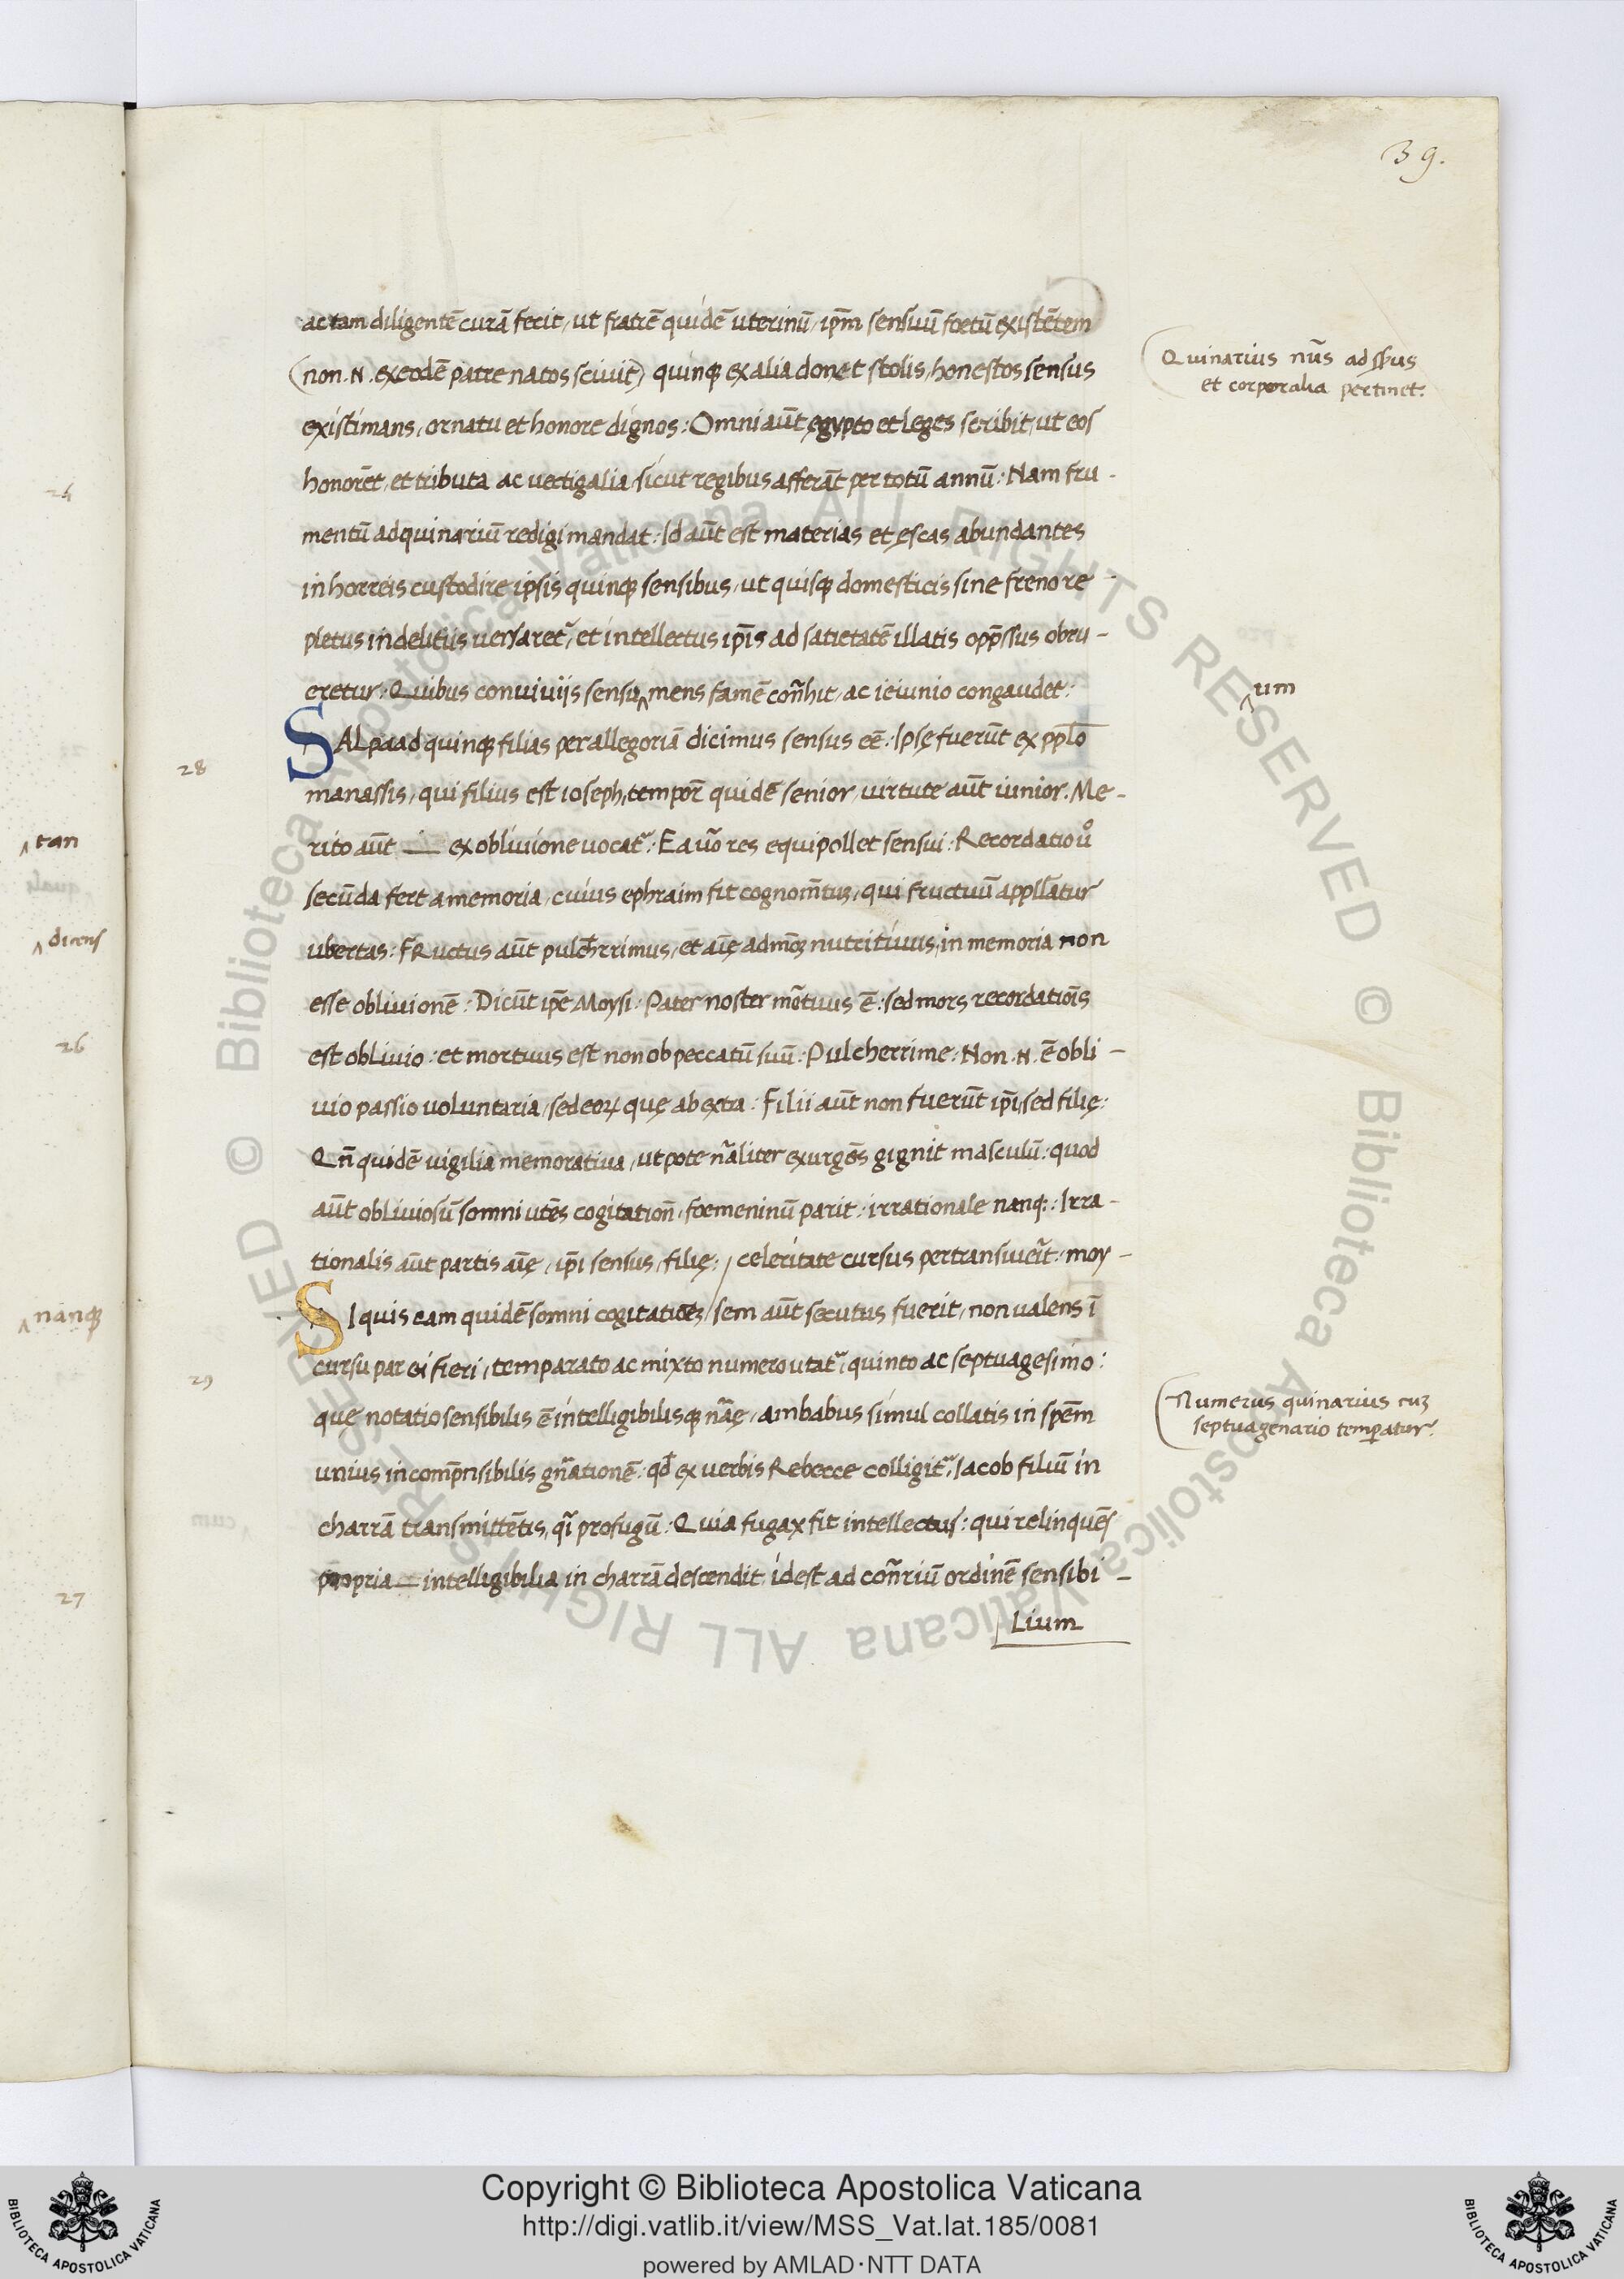 39.
ac tam diligentē curā fecit, ut fratrē quidē uterinū, ip̄m sensuū foetū existētem
(non .N. ex eodē patre natos sciuit) quinq ex alia donet stolis, honestos sensus
existimans, ornatu et honore dignos: Omni aūt ęgypto et leges scribit, ut eos
honorēt, et tributa ac uectigalia, sicut regibus afferāt per totū annū: Nam fru-
mentū ad quinariū redigi mandat: Id aūt est materias et ęscas abundantes
in horreis custodire ipsis quinq sensibus, ut quisq domesticis sine freno re-
pletus in delitiis uersaret᷑, et intellectus ip̄is ad satietatē illatis opp̄ssus obru-
eretur: Quibus conuiuijs sensu‸mens famē con̄hit, ac ieiunio congaudet:
SALpaad quinq filias per allegoriā dicimus sensus eē: Ipsę fuerūt ex pplō
manassis, qui filius est ioseph, tempor̄ quidē senior, uirtute aūt iunior. Me-
rito aūt — ex obliuione uocat᷑: Ea uo᷑ res equipollet sensui: Recordatio uº
secūda fert a memoria, cuius ephraim fit cognom̄tuꝫ, qui fructuū appll̄atur
ubertas: fRuctus aūt pulch̄errimus, et aīę admōꝫ nutritiuus, in memoria non
esse obliuionē: Dicūt ipē Moysi: Pater noster mōtuus ē: sed mors recordatiōis
est obliuio: et mortuus est non ob peccatū suū: Pulcherrime: Non .N. ē obli-
uio passio uoluntaria, sed eoꝝ quę ab extra: Filii aūt non fuerūt ip̄i, sed filię:
Qn̄ quidē uigilia memoratiua, ut pote nāliter exurgēs gignit masculū: quod
aūt obliuiosū somni utēs cogitation̄, foemeninū parit: irrationale nanq: Irra-
tionalis aūt partis aīę, ip̄i sensus, filię: / celeritate cursus pertransiuerīt: moy-
SI quis eam quidē somni cogitationeꝫ, sem aūt secutus fuerit, non ualens ī
cursu par ei fieri, temparato ac mixto numero utat᷑, quinto ac septuagesimo:
quę notatio sensibilis ē intelligibilisq nāę, ambabus simul collatis in spēm
unius incomp̄nsibilis gn̄ationē: qd̄ ex uerbis Rebecce colligit᷑, Iacob filiū in
charrā transmittētis, qī profugū: Quia fugax fit intellectus: qui relinquēs
propria — intelligibilia in charrā descendit, idest ad con̄riū ordinē sensibi-
Lium
Quinarius nūs ad sēsus
et corporalia pertinet:
‸um
Numerus quinarius cuꝫ
septuagenario temperatur:
28
29
24
‸tan
‸dicens
26
‸nanq
27
© Biblioteca Apostolica Vaticana ALL RIGHTS RESERVED © Biblioteca Apostolica Vaticana ALL RIGHTS RESERVED
Copyright © Biblioteca Apostolica Vaticana
http://digi.vatlib.it/view/MSS_Vat.lat.185/0081
powered by AMLAD·NTT DATA
BIBLIOTECA APOSTOLICA VATICANA
BIBLIOTECA APOSTOLICA VATICANA